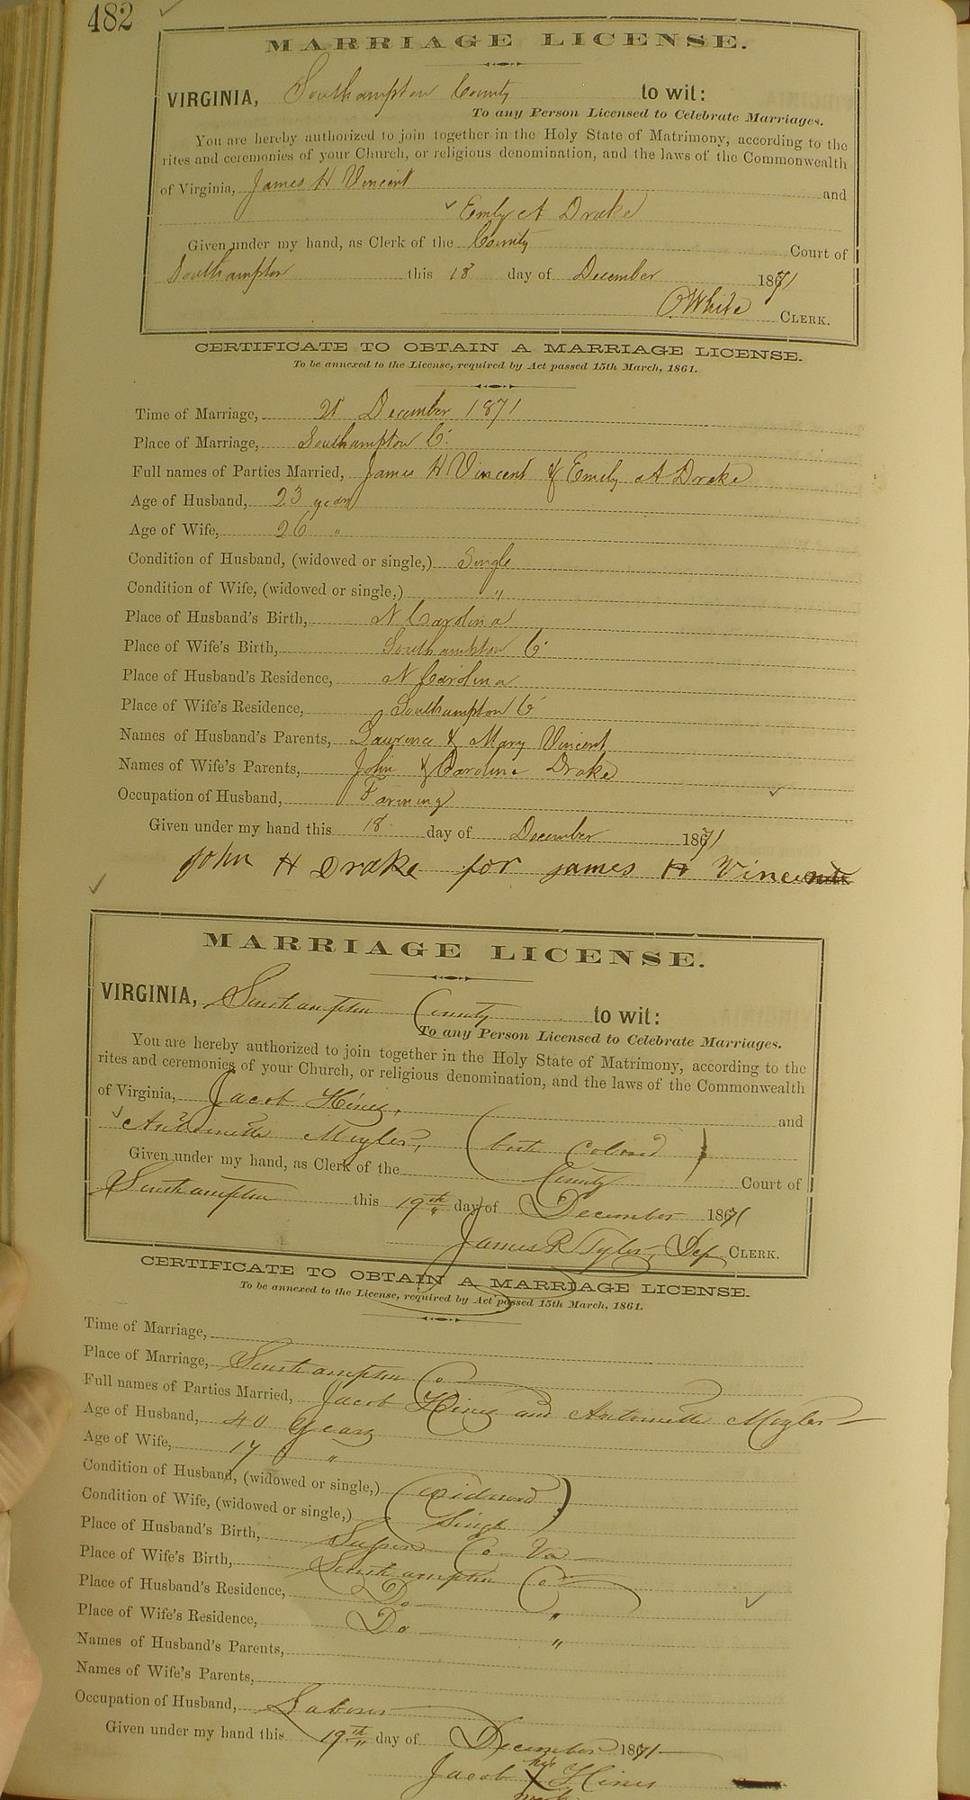 482
MARRIAGE LICENSE.
VIRGINIA, Southampton County to wit:
To any Person Licensed to Celebrate Marriages.
You are hereby authorized to join together in the Holy State of Matrimony, according to the
rites and ceremonies of your Church, or religious denomination, and the laws of the Commonwealth
of Virginia, James H Vincent and
Emly A Drake
Given under my hand, as Clerk of the County Court of
Southampton this 18 day of December 1871
White CLERK.
CERTIFICATE TO OBTAIN A MARRIAGE LICENSE.
To be annexed to the License, required by Act passed 15th March, 1861.
Time of Marriage, 21 December 1871
Place of Marriage, Southampton Co.
Full names of Parties Married, James H Vincent & Emily A Drake
Age of Husband, 23 years
Age of Wife, 26 "
Condition of Husband, (widowed or single,) Single
Condition of Wife, (widowed or single,) "
Place of Husband's Birth, N Carolina
Place of Wife's Birth, Southampton Co
Place of Husband's Residence, N Carolina
Place of Wife's Residence, Southampton Co
Names of Husband's Parents, Lawrence & Mary Vincent
Names of Wife's Parents, John & Caroline Drake
Occupation of Husband, Farming
Given under my hand this 18 day of December 1871
John H Drake for James H Vincent
MARRIAGE LICENSE.
VIRGINIA, Southampton County to wit:
To any Person Licensed to Celebrate Marriages.
You are hereby authorized to join together in the Holy State of Matrimony, according to the
rites and ceremonies of your Church, or religious denomination, and the laws of the Commonwealth
of Virginia, Jacob Hines, and
Antoinette (both Colored)
Given under my hand, as Clerk of the County Court of
Southampton this 19th day of December 1871
James R Tyler, Dep CLERK.
CERTIFICATE TO OBTAIN A MARRIAGE LICENSE.
To be annexed to the License, required by Act passed 15th March, 1861.
Time of Marriage,
Place of Marriage, Southampton Co.
Full names of Parties Married, Jacob Hines and Antoinette
Age of Husband, 40 years
Age of Wife, 17 "
Condition of Husband, (widowed or single,) (widowed)
Condition of Wife, (widowed or single,) Single
Place of Husband's Birth, Co Va
Place of Wife's Birth, Southampton Co
Place of Husband's Residence, Do "
Place of Wife's Residence, Do "
Names of Husband's Parents,
Names of Wife's Parents,
Occupation of Husband, Laborer
Given under my hand this 19th day of December 1871
his
Jacob X Hines
mark